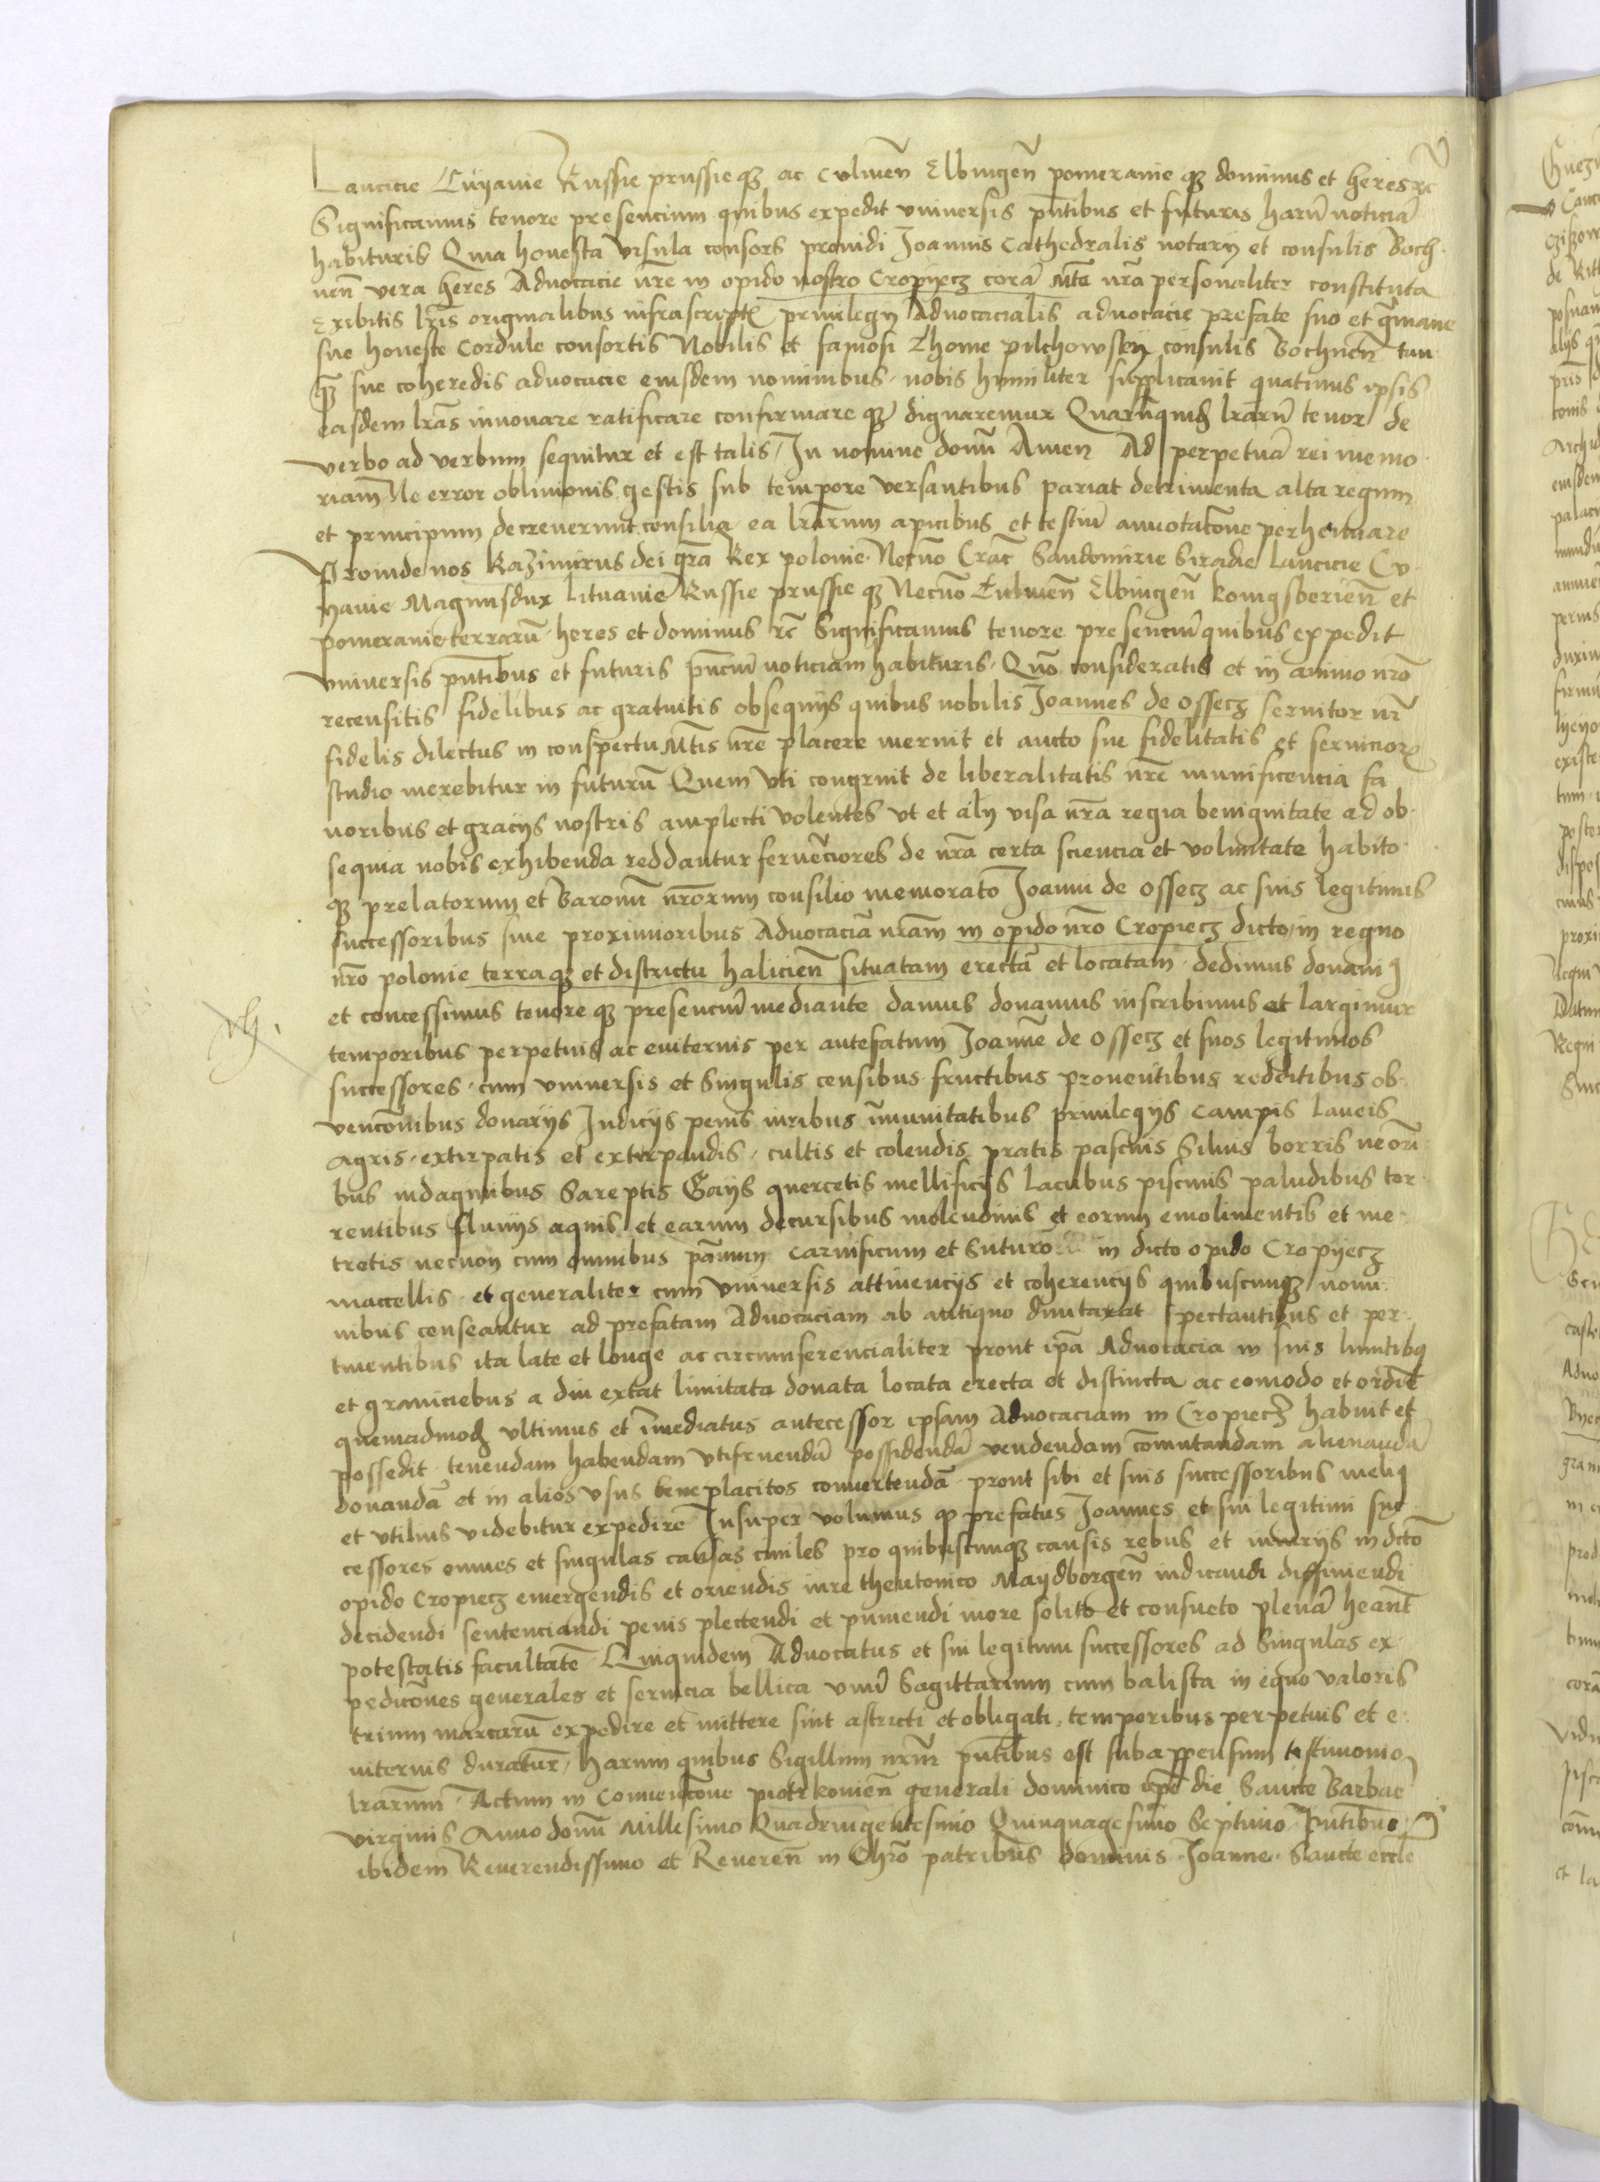 Lancicie Cuyavie Russie prussie qz ac Culmen̄ Elbingen̄ pomeranie qz dominus et heres rc̄
Significamus tenore presencium quibus expedit vniversis pn̄tibus et futuris harū noticiā
habituris Quia honesta Vrsula consors providi Joannis Cathedralis notarij et consulis Boch-
nen̄ vera heres Advocacie nr̄e in opido nostro Cropijecz corā Mte nr̄a personaliter constituta
Exibitis lr̄is originalibus infrascript privilegij Advocacialis advocacie prefate suo et germane
sue honeste Cordule consortis Nobilis et famosi Thome pilchowskij consulis Bochnen̄ tan-
qz sue coheredis advocacie eiusdem nominibus nobis humiliter supplicavit quatinus ipsis
easdem lr̄as innovare ratificare confirmare qz dignaremur Quarūquidē lr̄arū tenor de
verbo ad verbum sequitur et est talis / In nomine domī Amen Ad perpetuā rei memo-
riam Ne error oblivionis gestis sub tempore versantibus pariat detrimenta alta regum
et principum decreverunt consilia ea lr̄arum apicibus et testiū annotatōne perhennare
Proinde nos Kazimirus dei grā Rex polonie Necnō Crac̄ Sandomirie Siradie Lancicie Cu-
yavie Magnusdux Lituanie Russie prussie qz Necnō Culmen̄ Elbingen̄ konigsberien̄ et
pomeranie terrarū heres et dominus rc̄ Significamus tenore presenciū quibus expedit
vniversis pn̄tibus et futuris pn̄ciū noticiam habituris Quō consideratis et in animo nr̄o
recensitis fidelibus ac gratuitis obsequijs quibus nobilis Joannes de Ossecz servitor nr̄
fidelis dilectus in conspectu Mtis nr̄e placere meruit et aucto sue fidelitatis et servicior
studio merebitur in futurū Quem vti congruit de liberalitatis nr̄e munificencia fa
voribus et gracijs nostris amplecti volentes vt et alij visa nr̄a regia benignitate ad ob-
sequia nobis exhibenda reddantur fervēciores de nr̄a certa sciencia et voluntate habito-
qz prelatorum et Baronū nr̄orum consilio memorato Joanni de Ossecz ac suis legitimis
successoribus sive proximioribus Advocaciā nr̄am in opido nr̄o Cropiecz dicto in regno
nr̄o polonie terraqz et districtu halicien̄ situatam erectā et locatam dedimus donavim9
et concessimus tenore qz presenciū mediante damus donamus inscribimus et largimur
temporibus perpetuis ac eviternis per antefatum Joannē de Ossecz et suos legitimos
successores cum vniversis et singulis censibus fructibus proventibus redditibus ob-
vencōnibus donarijs Iudicijs penis iuribus īmunitatibus privilegijs campis laneis
agris extirpatis et extirpandis cultis et colendis pratis pascuis Silvis borris neori-
bus indaginibus Sareptis Gayis quercetis mellificijs Lacubus piscinis paludibus tor-
rentibus fluvijs aquis et earum decursibus molendinis et eorum emolimentis et me-
tretis necnon cum omnibus pānum carnificum et Suturo in dicto opido Cropijecz
maccellis et generaliter cum vniversis attinencijs et coherencijs quibuscunqz nomi-
nibus censeantur ad prefatam Advocaciam ab antiquo dinutarat spectantibus et per-
tinentibus ita late et longe ac circumferencialiter prout ipā Advocacia in suis limitibus
et graniciebus a diu extat limitata donata locata erecta et distincta ac eomodo et ordīe
quemadmodū ultimus et īmediatus antecessor ipsam Advocaciam in Cropiecz habuit et
possedit tenendam habendam vtifruendā possidendā vendendam cōmutandam alienandā
donandā et in alios vsus beneplacitos convertendā prout sibi et suis successoribus meli9
et vtilius videbitur expedire Insuper volumus qp prefatus Joannes et sui legitimi suc-
cessores omnes et singulas causas civiles pro quibuscunqz causis rebus et iniurijs in dicto
opido Cropiecz emergendis et oriendis iure theutonico Maijdborgen̄ iudicandi diffiniendi
decidendi sentenciandi penis plectendi et puniendi more solito et consueto plenā heant
potestatis facultatē Quiquidem Advocatus et sui legitimi successores ad singulas ex-
pedicōnes generales et servicia bellica vnū Sagittarium cum balista in equo valoris
trium marcarū expedire et mittere sint astricti et obligati temporibus perpetuis et e-
viternis duratur̄ Harum quibus Sigillum nr̄um pn̄tibus est subappensum testimonio
lr̄arum Actum in Convencōne piotrkovien̄ generali dominico ipō die Sancte Barbare
virginis Anno domī Millesimo Quadringentesimo Quinquagesimo Septimo pn̄tibus
ibidem Reverendissimo et Reveren̄ in Chr̄o patribus dominis Joanne Sancte eccl̄e